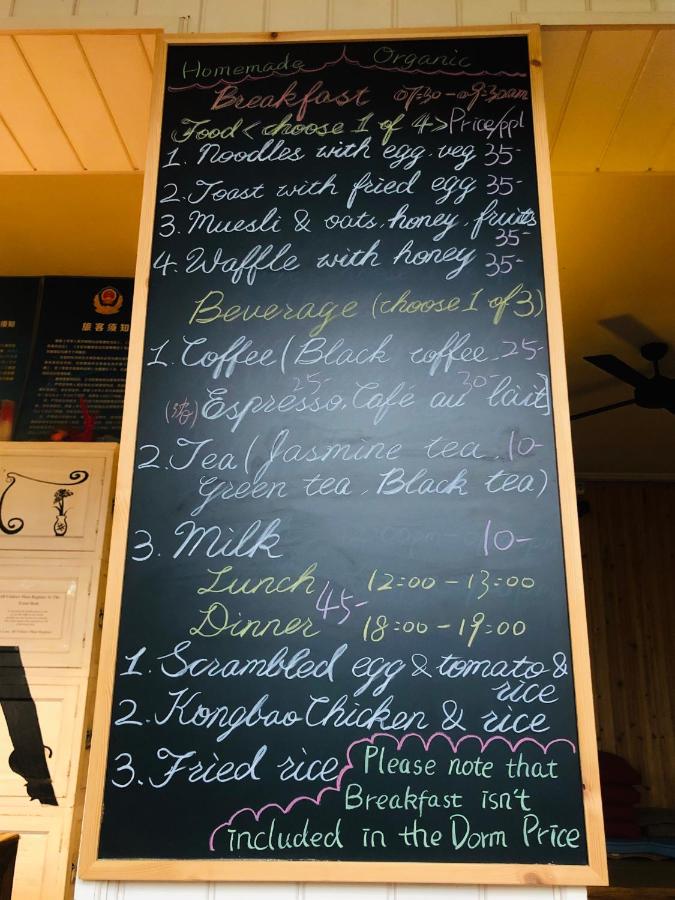 Homemade Organic
Breakfast 07:30-09:30am
Food <choose 1 of 4> Price/ppl
1. Noodles with egg. veg 35-
2. Toast with fried egg 35-
3. Muesli & oats. honey. fruits
35-
4. Waffle with honey 35-
Beverage (choose 1 of 3)
1. Coffee (Black coffee. 25-
25- 30-
Espresso. Café au lait]
2. Tea (Jasmine tea. 10-
Green tea. Black tea)
3. Milk 10-
Lunch 12:00-13:00
45-
Dinner 18:00-19:00
1. Scrambled egg & tomato &
rice
2. Kongbao Chicken & rice
3. Fried rice
Please note that
Breakfast isn't
included in the Dorm Price
旅客须知